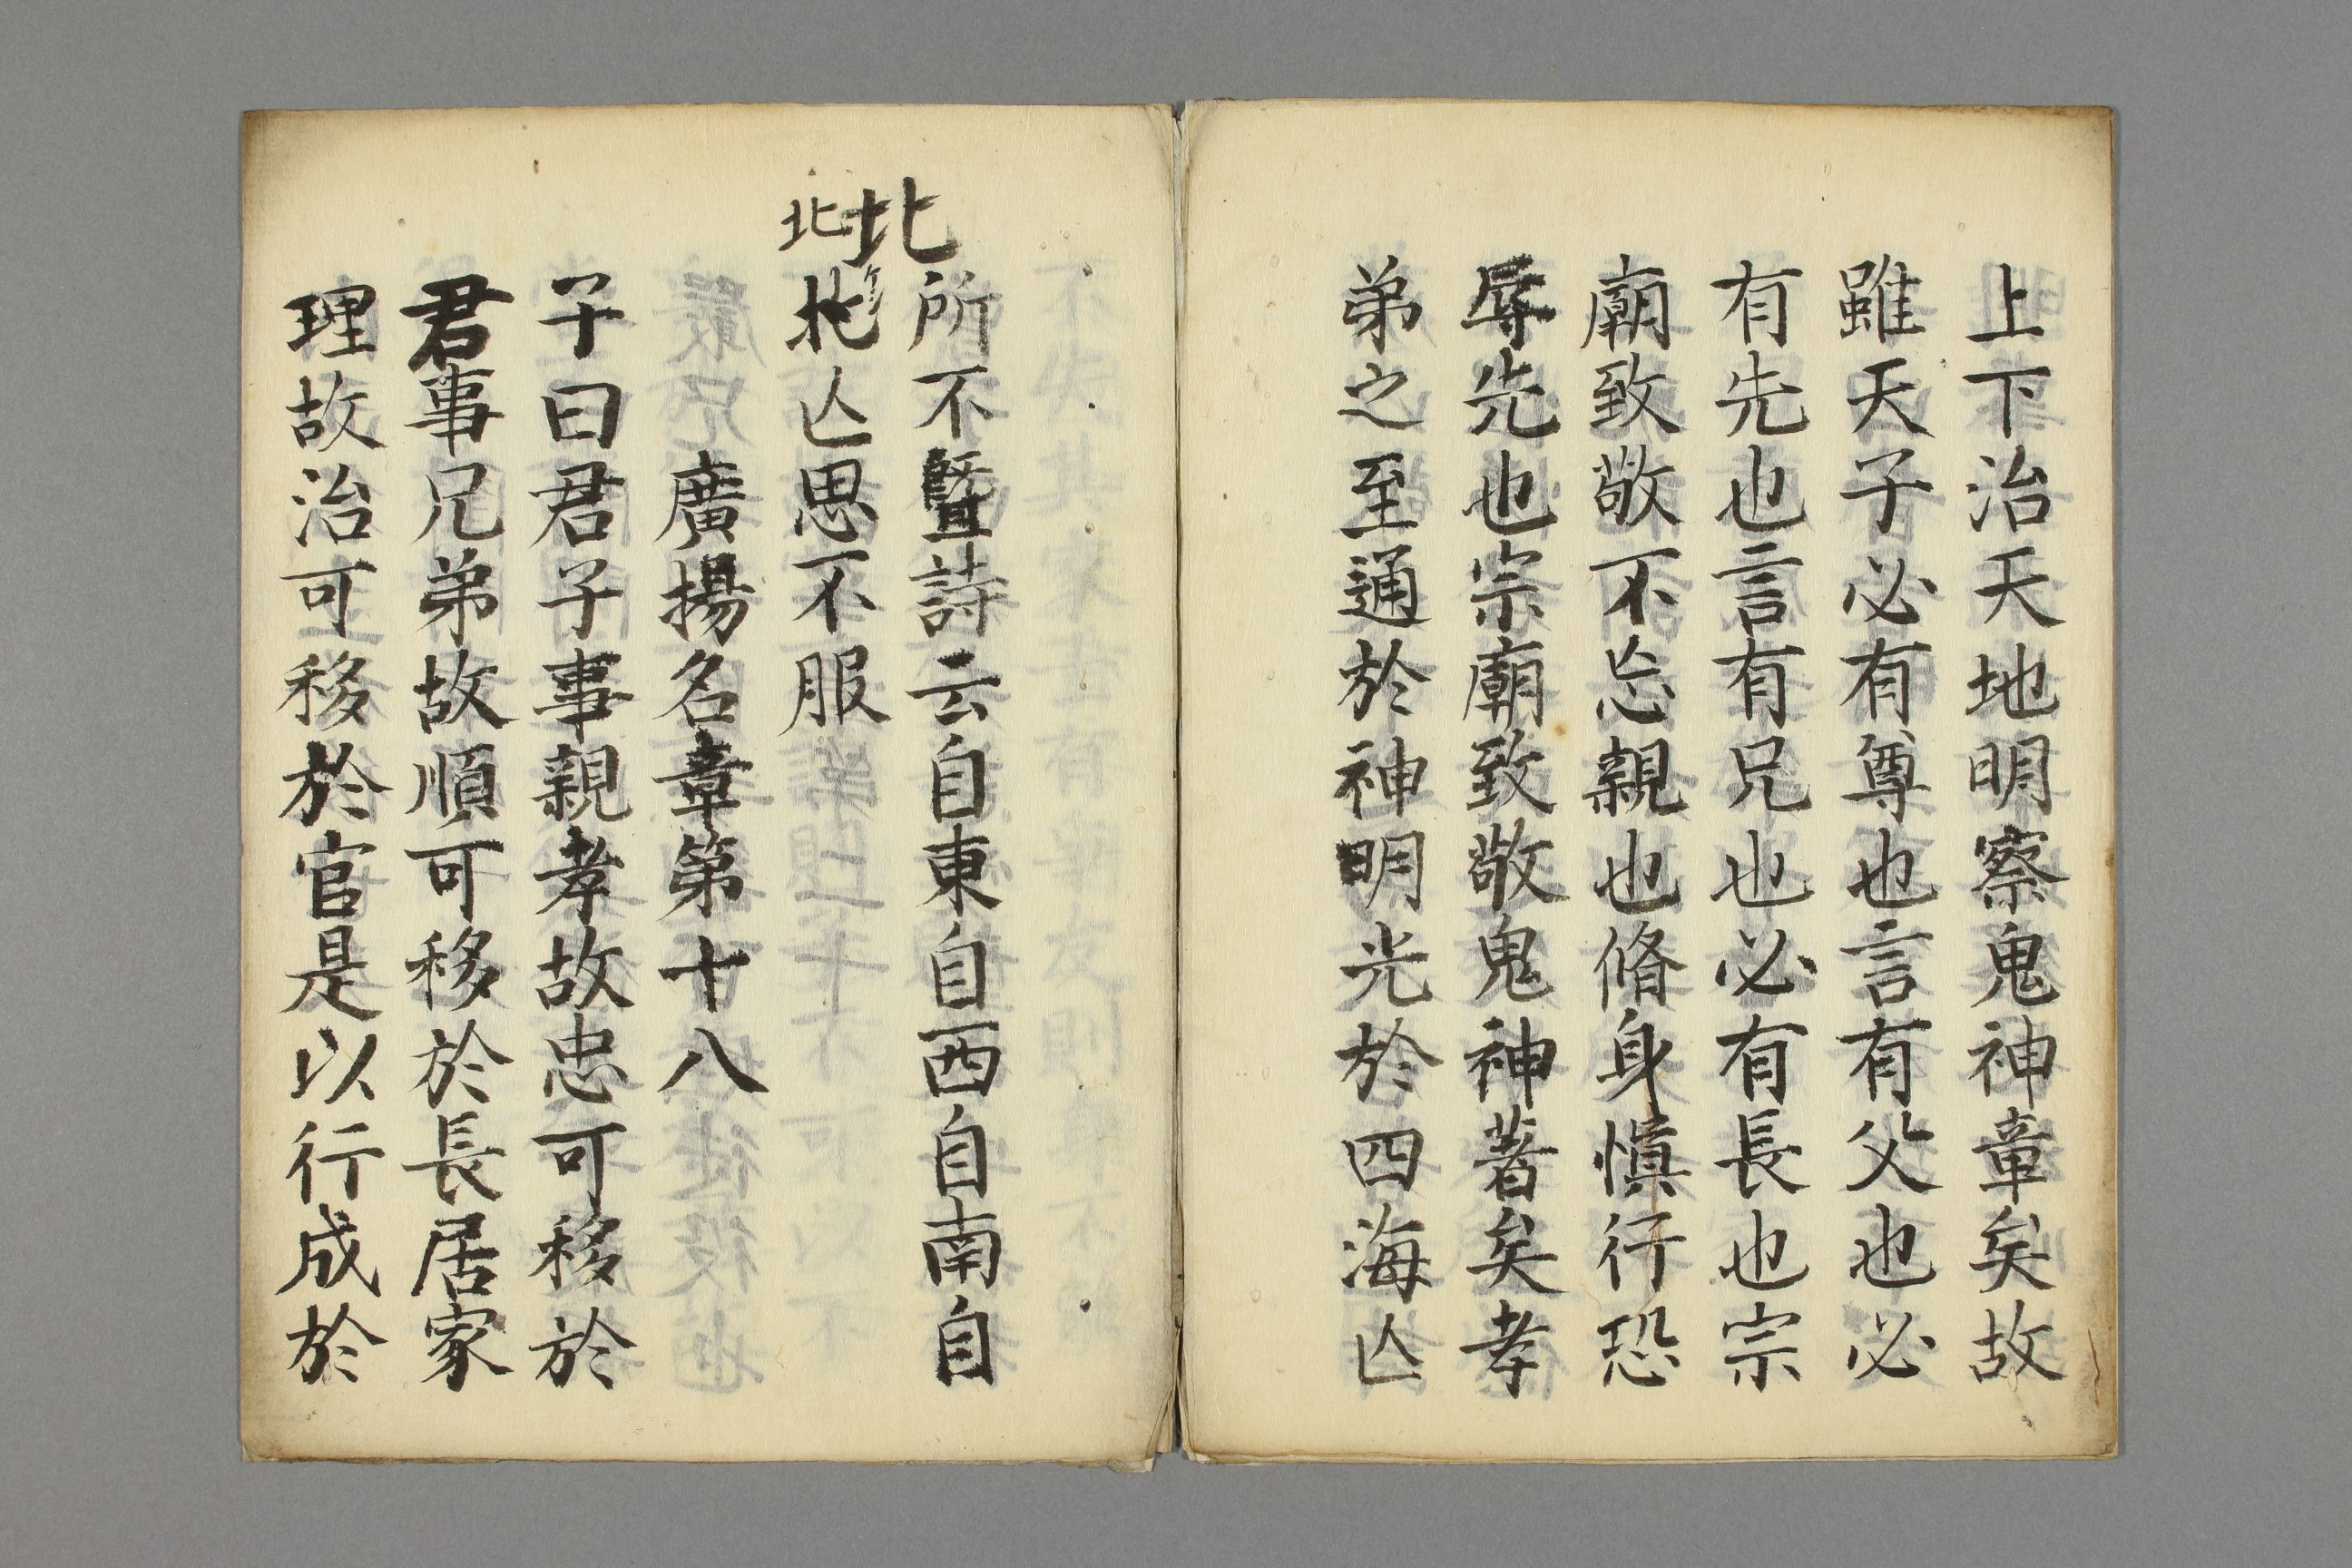 上下治天地明察鬼神章矣故
雖天子必有尊也言有父也必
有先也言有兄也必有長也宗
廟致敬不忘親也脩身慎行恐
辱先也宗廟致敬鬼神著矣孝
弟之至通於神明光於四海亾
所不曁詩云自東自西自南自
北
北
北亾思不服
廣揚名章第十八
子曰君子事親孝故忠可移於
君事兄弟故順可移於長居家
理故治可移於官是以行成於